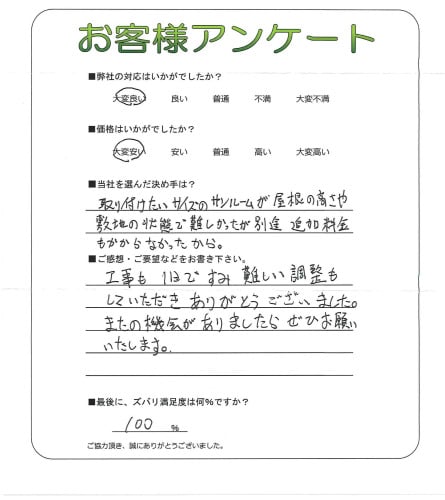 お客様アンケート
■弊社の対応はいかがでしたか?
大変良い 良い 普通 不満 大変不満
■価格はいかがでしたか?
大変安い 安い 普通 高い 大変高い
■当社を選んだ決め手は?
取り付けたいサイズのサンルームが屋根の高さや
敷地の状態で難しかったが別途 追加料金
もかからなかったから。
■ご感想・ご要望などをお書き下さい。
工事も 1日ですみ 難しい調整も
していただき ありがとうございました。
またの機会がありましたら ぜひお願い
いたします。
■最後に、ズバリ満足度は何%ですか?
100 %
ご協力頂き、誠にありがとうございました。